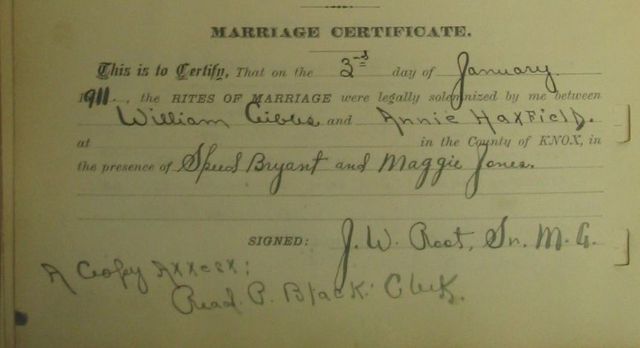 MARRIAGE CERTIFICATE.
This is to Certify, That on the 3rd day of January
1911, the RITES OF MARRIAGE were legally solemnized by me between
William Gibbs and Annie Hatfield.
at in the County of KNOX, in
the presence of Speed Bryant and Maggie Jones.
SIGNED: J. W. Root, Sr. M. G.
A Copy Attest:
Read P. Black Clerk.